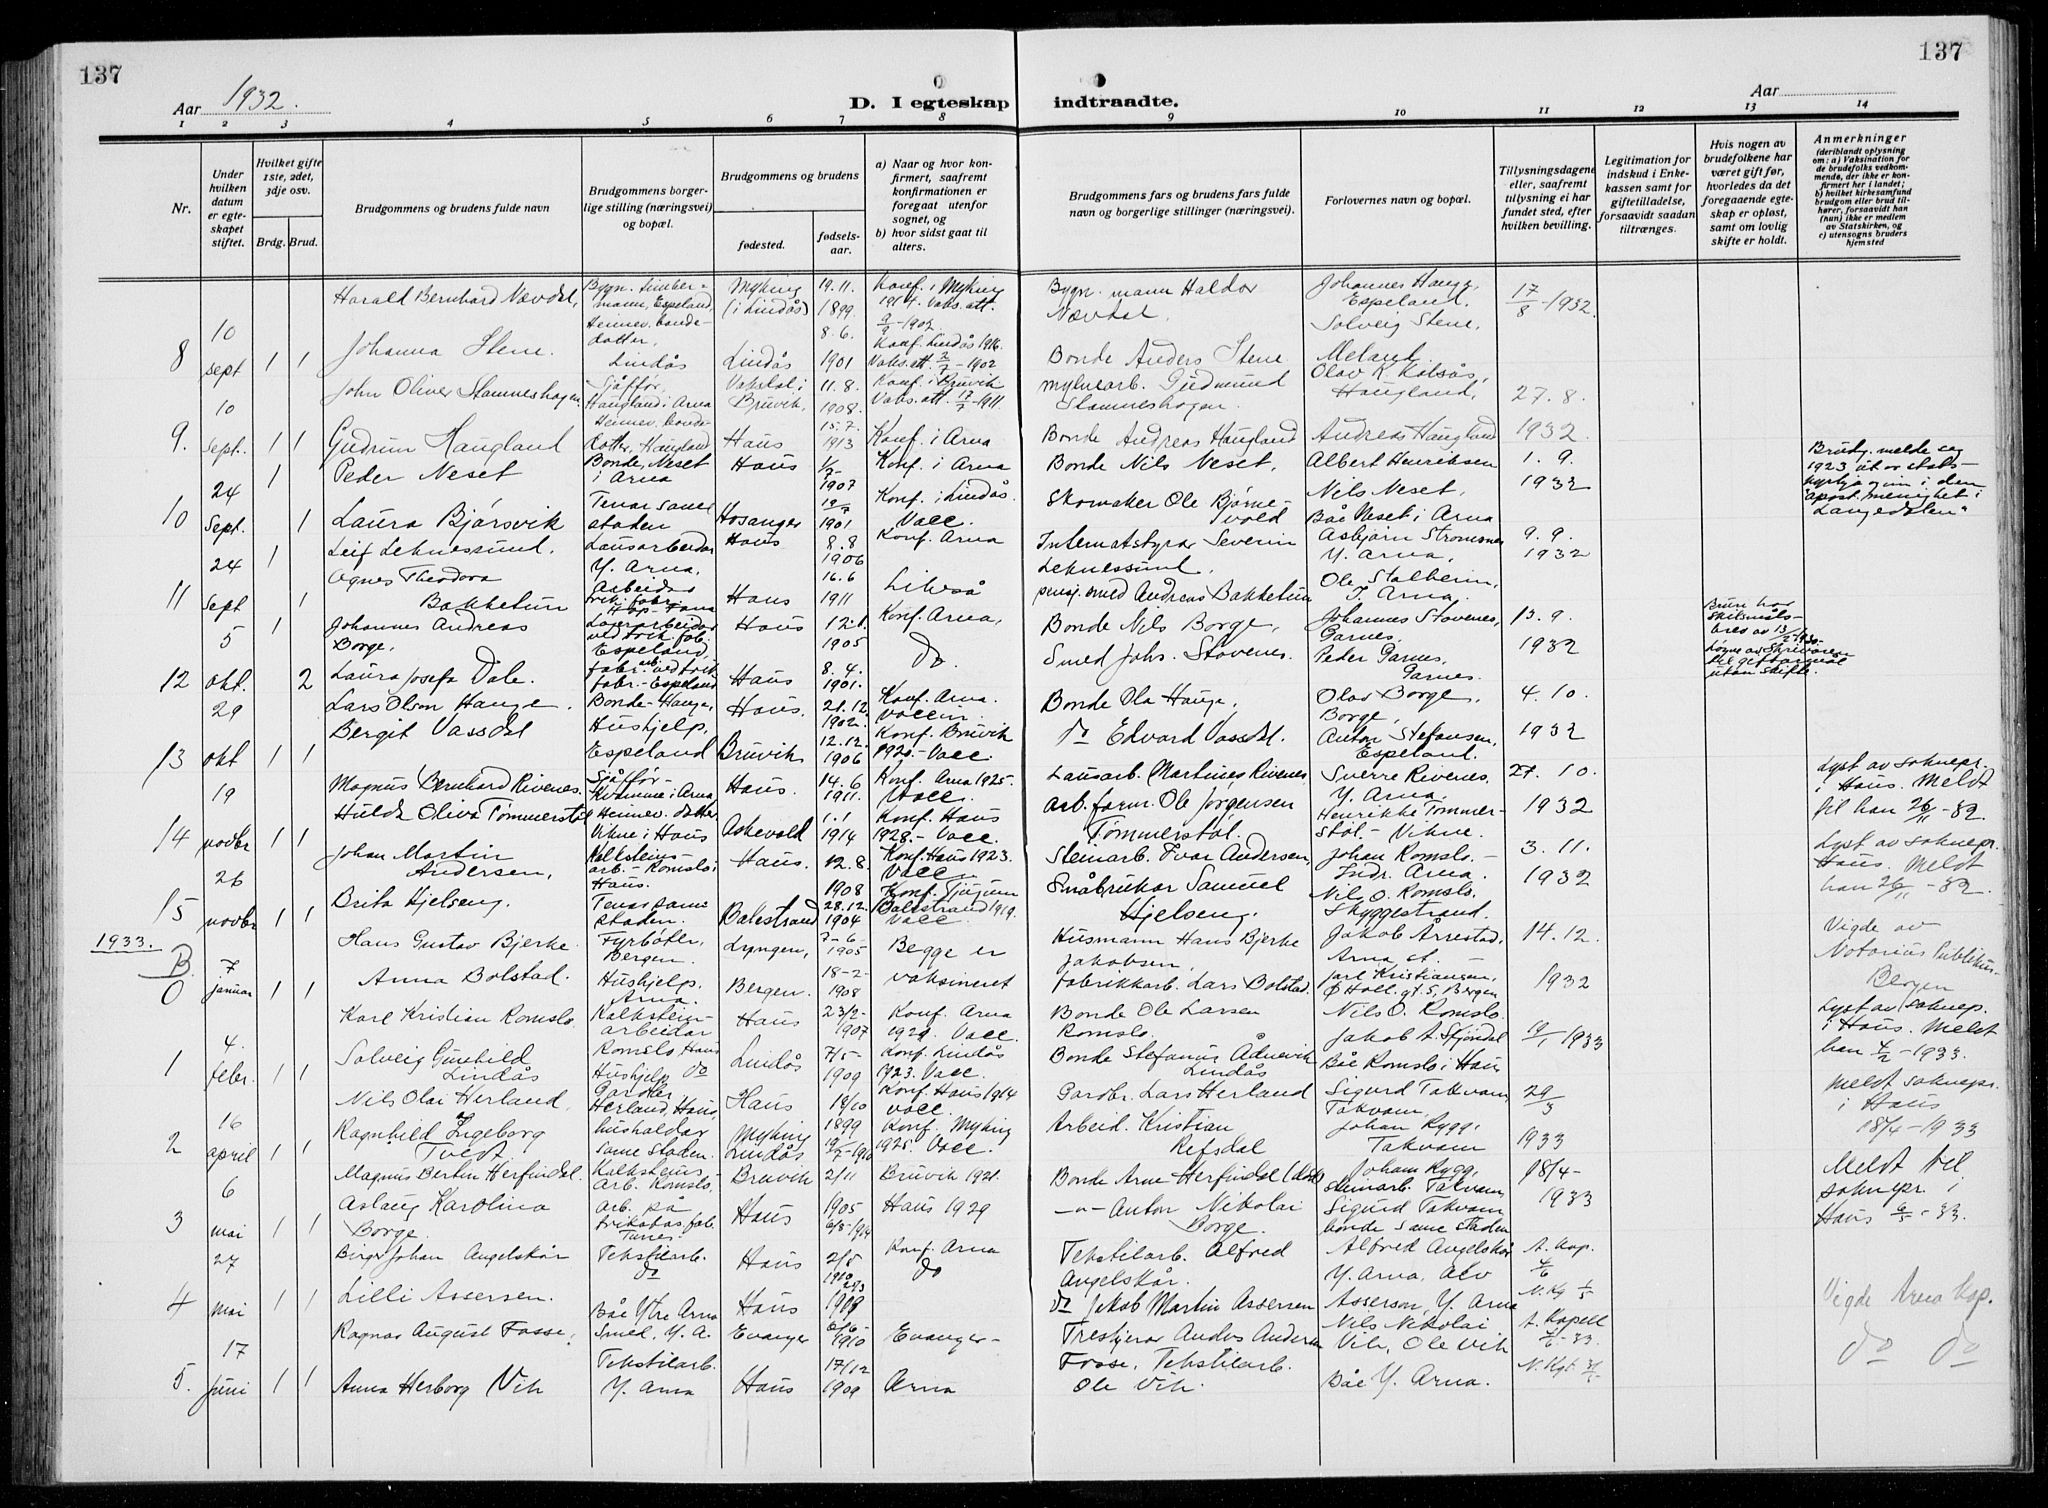 137
137
Aar 1932.
D. I egteskap indtraadte.
Aar
1 2 3 4 5 6 7 8 9 10 11 12 13 14
Nr.
Under hvilken datum er egteskapet stiftet.
Hvilket gifte 1ste, 2det, 3dje osv.
Brdg. Brud.
Brudgommens og brudens fulde navn
Brudgommens borgerlige stilling (næringsvei) og bopæl.
Brudgommens og brudens
fødested.
fødselsaar.
a) Naar og hvor konfirmert, saafremt konfirmationen er foregaat utenfor sognet, og
b) hvor sidst gaat til alters.
Brudgommens fars og brudens fars fulde navn og borgerlige stillinger (næringsvei).
Forlovernes navn og bopæl.
Tillysningsdagene eller, saafremt tillysning ei har fundet sted, efter hvilken bevilling.
Legitimation for indskud i Enkekassen samt for giftetilladelse, forsaavidt saadan tiltrænges.
Hvis nogen av brudefolkene har været gift før, hvorledes da det foregaaende egteskap er opløst, samt om lovlig skifte er holdt.
Anmerkninger (deriblandt oplysning om: a) Vaksination for de brudefolks vedkommende, der ikke er konfirmert her i landet; b) hvilket kirkesamfund brudgom eller brud tilhører, forsaavidt han (hun) ikke er medlem av Statskirken, og c) utensogns bruders hjemsted
8 10 sept 1 1
Harald Bernhard Nævdal, Bygn. timbermann, Espeland, Myking (i Lindås) 19.11. 1899. Konf. i Myking 1914. Vaks. att. 9/9-1902 Bygn. mann Haldor Nævdal. Johannes Haugg, Espeland. 17/8-1932
Johanna Stene. Heimev. bondedotter, Lindås Lindås 8.6. 1901 Konf. Lindås 1916. Vaks. att. 2/7-1902 Bonde Anders Stene Solveig Stene, Meland.
9. 10 Sept. 1 1
John Oliver Stamneshagen Sjåffør, Haugland i Arna Vaksdal i Bruvik, 11.8. 1908. Konf. i Bruvik Vaks. att. 17/7-1911. mylnearb. Gudmund Stamneshagen. Olav K. Kalsås, Haugland, 27.8. 1932.
Gudrun Haugland Heimev. bondedotter, Haugland Haus 15.7. 1913 Konf. i Arna Bonde Andreas Haugland Andreas Haugland
10 24 Sept. 1 1
Peder Neset Bonde, Neset i Arna Haus 1907 Konf. i Arna Bonde Nils Neset, Albert Henriksen 1.9. 1932 Brudg. melde seg 1923 ut or statskyrkja og inn i den "apost. menighet i Langedalen"
Laura Bjørsvik Tenar same staden Hosanger 1901 Konf. i Lindås. Vacc. Skomaker Ole Bjørnevold Nils Neset, Båe Neset i Arna
11 24 Sept 1 1
Leif Leknessund. Lausarbeidar Y. Arna, Haus 8.8 1906 Konf. Arna Internatstyrar Severin Leknessund, Asbjørn Strømsnes Y. Arna, 9.9. 1932
Agnes Theodora Bakketun Arbeider trik. fabr. Hop. Fana Haus 16.6 1911 Likeså pensj. smed Andreas Bakketun Ole Stalheim, I. Arna.
12 5 okt. 1 2
Johannes Andreas Borge, Lagerarbeidar ved trik. fab. Espeland, Haus 12.1. 1905 Konf. Arna, Bonde Nils Borge, Johannes Stavenes, Garnes, 13.9. 1932
Laura Josefa Dale. fabr. arb. ved trik fabr. - Espeland Haus 8.4. 1901. Do. Smed Johs. Stavenes. Peder Garnes, Garnes.
13 29 okt 1 1
Lars Olson Hauge. Bonde - Hauge, Haus. 21.12 1902. Konf. Arna. Vaccin. Bonde Ola Hauge, Olav Borge, Borge, 4.10. 1932
Bergit Vassdal Hushjelp, Espeland Bruvik 12.12. 1906 Konf. Bruvik 1920. - Vacc. Do Edvard Vassdal. Anton Stefansen, Espeland.
14 19 novbr 1 1
Magnus Bernhard Rivenes. Sjåffør - Kvamme i Arna Haus. 14.6 1911. Konf. Arna 1925. Vacc. Lausarb. Martines Rivenes Sverre Rivenes, Y. Arna. 27.10. 1932 Lyst av soknepr. i Haus. Meldt til han 26/11-32.
Hulda Oliva Tømmerstøl Heimev. datter Vikne i Haus Askevold 1.1 1914 Konf. Haus 1928. - Vacc. arb. form. Ole Jørgensen Tømmerstøl. Henrikke Tømmerstøl - Vikne.
15 26 novbr 1 1
Johan Martin Andersen, Kalksteinsarb. - Romslo i Haus. Haus. 12.8. 1908 Konf. Haus 1923. Vacc. Steinarb. Ivar Andersen, Johan Romslo. - Indr. Arna. 3.11. 1932 Lyst av soknepr. Haus. Meldt han 26/11-32.
Brita Hjelseng. Tenar same staden. Balestrand 28.12. 1904 Konf. Tjugum Balestrand 1919. Vacc. Småbrukar Samuel Hjelseng. Nils O. Romslo. Skyggestrand.
1933.
B 0 7 januar 1 1
Hans Gustav Bjerke. Fyrbøter, Bergen. Lyngen, 7-6- 1905 Begge er vaksineret Husmann Hans Bjerke Jakobsen, Jakob Årrestad, Arna st. - 14.12. 1932 Vigde av Notarius Publikus - Bergen
Anna Bolstad. Hushjelp, Arna. Bergen. 18-2- 1908 fabrikkarb. Lars Bolstad. Jarl Kristiansen, Ø Holl. gt. 5, Bergen
1 4. febr. 1 1
Karl Kristian Romslo. Kalksteinarbeidar Romslo Haus Haus 23/2- 1907 Konf. Arna 1929. Vacc. Bonde Ole Larsen Romslo. Nils O. Romslo. 19/1 1933 Lyst av soknep. i Haus. Meldt han 4/2-1933.
Solveig Gunhild Lindås Hushjelp Do Lindås 7/5- 1909 Konf. Lindås 1923. Vacc. Bonde Stefanus Ådnevik Lindås Jakob A. Stjøndal Båe Romslo i Haus
2 16 april 1 1
Nils Olai Herland, Gardkar Herland, Haus, Haus 18/10 1899 Konf. Haus 1914 vacc. Gardbr. Lars Herland Sigurd Takvam, Takvam, 29/3 1933 Meldt soknepr. i Haus 18/4-1933
Ragnhild Ingeborg Tvedt hushaldar Same Staden. Myking Lindås 19/7-1910 Konf. Myking 1925. Vacc. Arbeid. Kristian Refsdal Johan Rygg, Takvam
3 6 mai 1 1
Magnus Bertin Herfindal. Kalksteinsarb. Romslo, Bruvik 2/11 1905 Bruvik 1921. Bonde Arne Herfindal Johan Rygg, steinarb. Takvam 18/4- 1933 Meldt til soknepr. i Haus 6/5-33.
Aslaug Karolina Borge. arb. på trikotasfab. Tunes Haus 6/8-1914 Haus 1929 -"- Anton Nikolai Borge. Sigurd Takvam bonde same staden
4 27 mai 1 1
Birger Johan Angelskår Tekstilarb. Do Haus 2/5 1910 Konf. Arna Tekstilarb. Alfred Angelskår. Alfred Angelskår Y. Arna, Alv A. Kap. 4/6 Vigde Arna Kap.
Lilli Assersen. Båe Ytre Arna Haus 1909 Do Do Jakob Martin Assersen Asserson, Y. Arna
5. 17 juni 1 1
Ragnar August Fosse, Smed, Y. A. Evanger 6/6- 1910 Evanger - Treskjerar Anders Andersen Fosse, Nils Nikolai Vik, Ole Vik A. Kapell Do Do
Anna Herborg Vik Tekstilarb. Y. Arna Haus 17/12 1909 Arna Tekstilarb. Ole Vik. Båe Y. Arna.